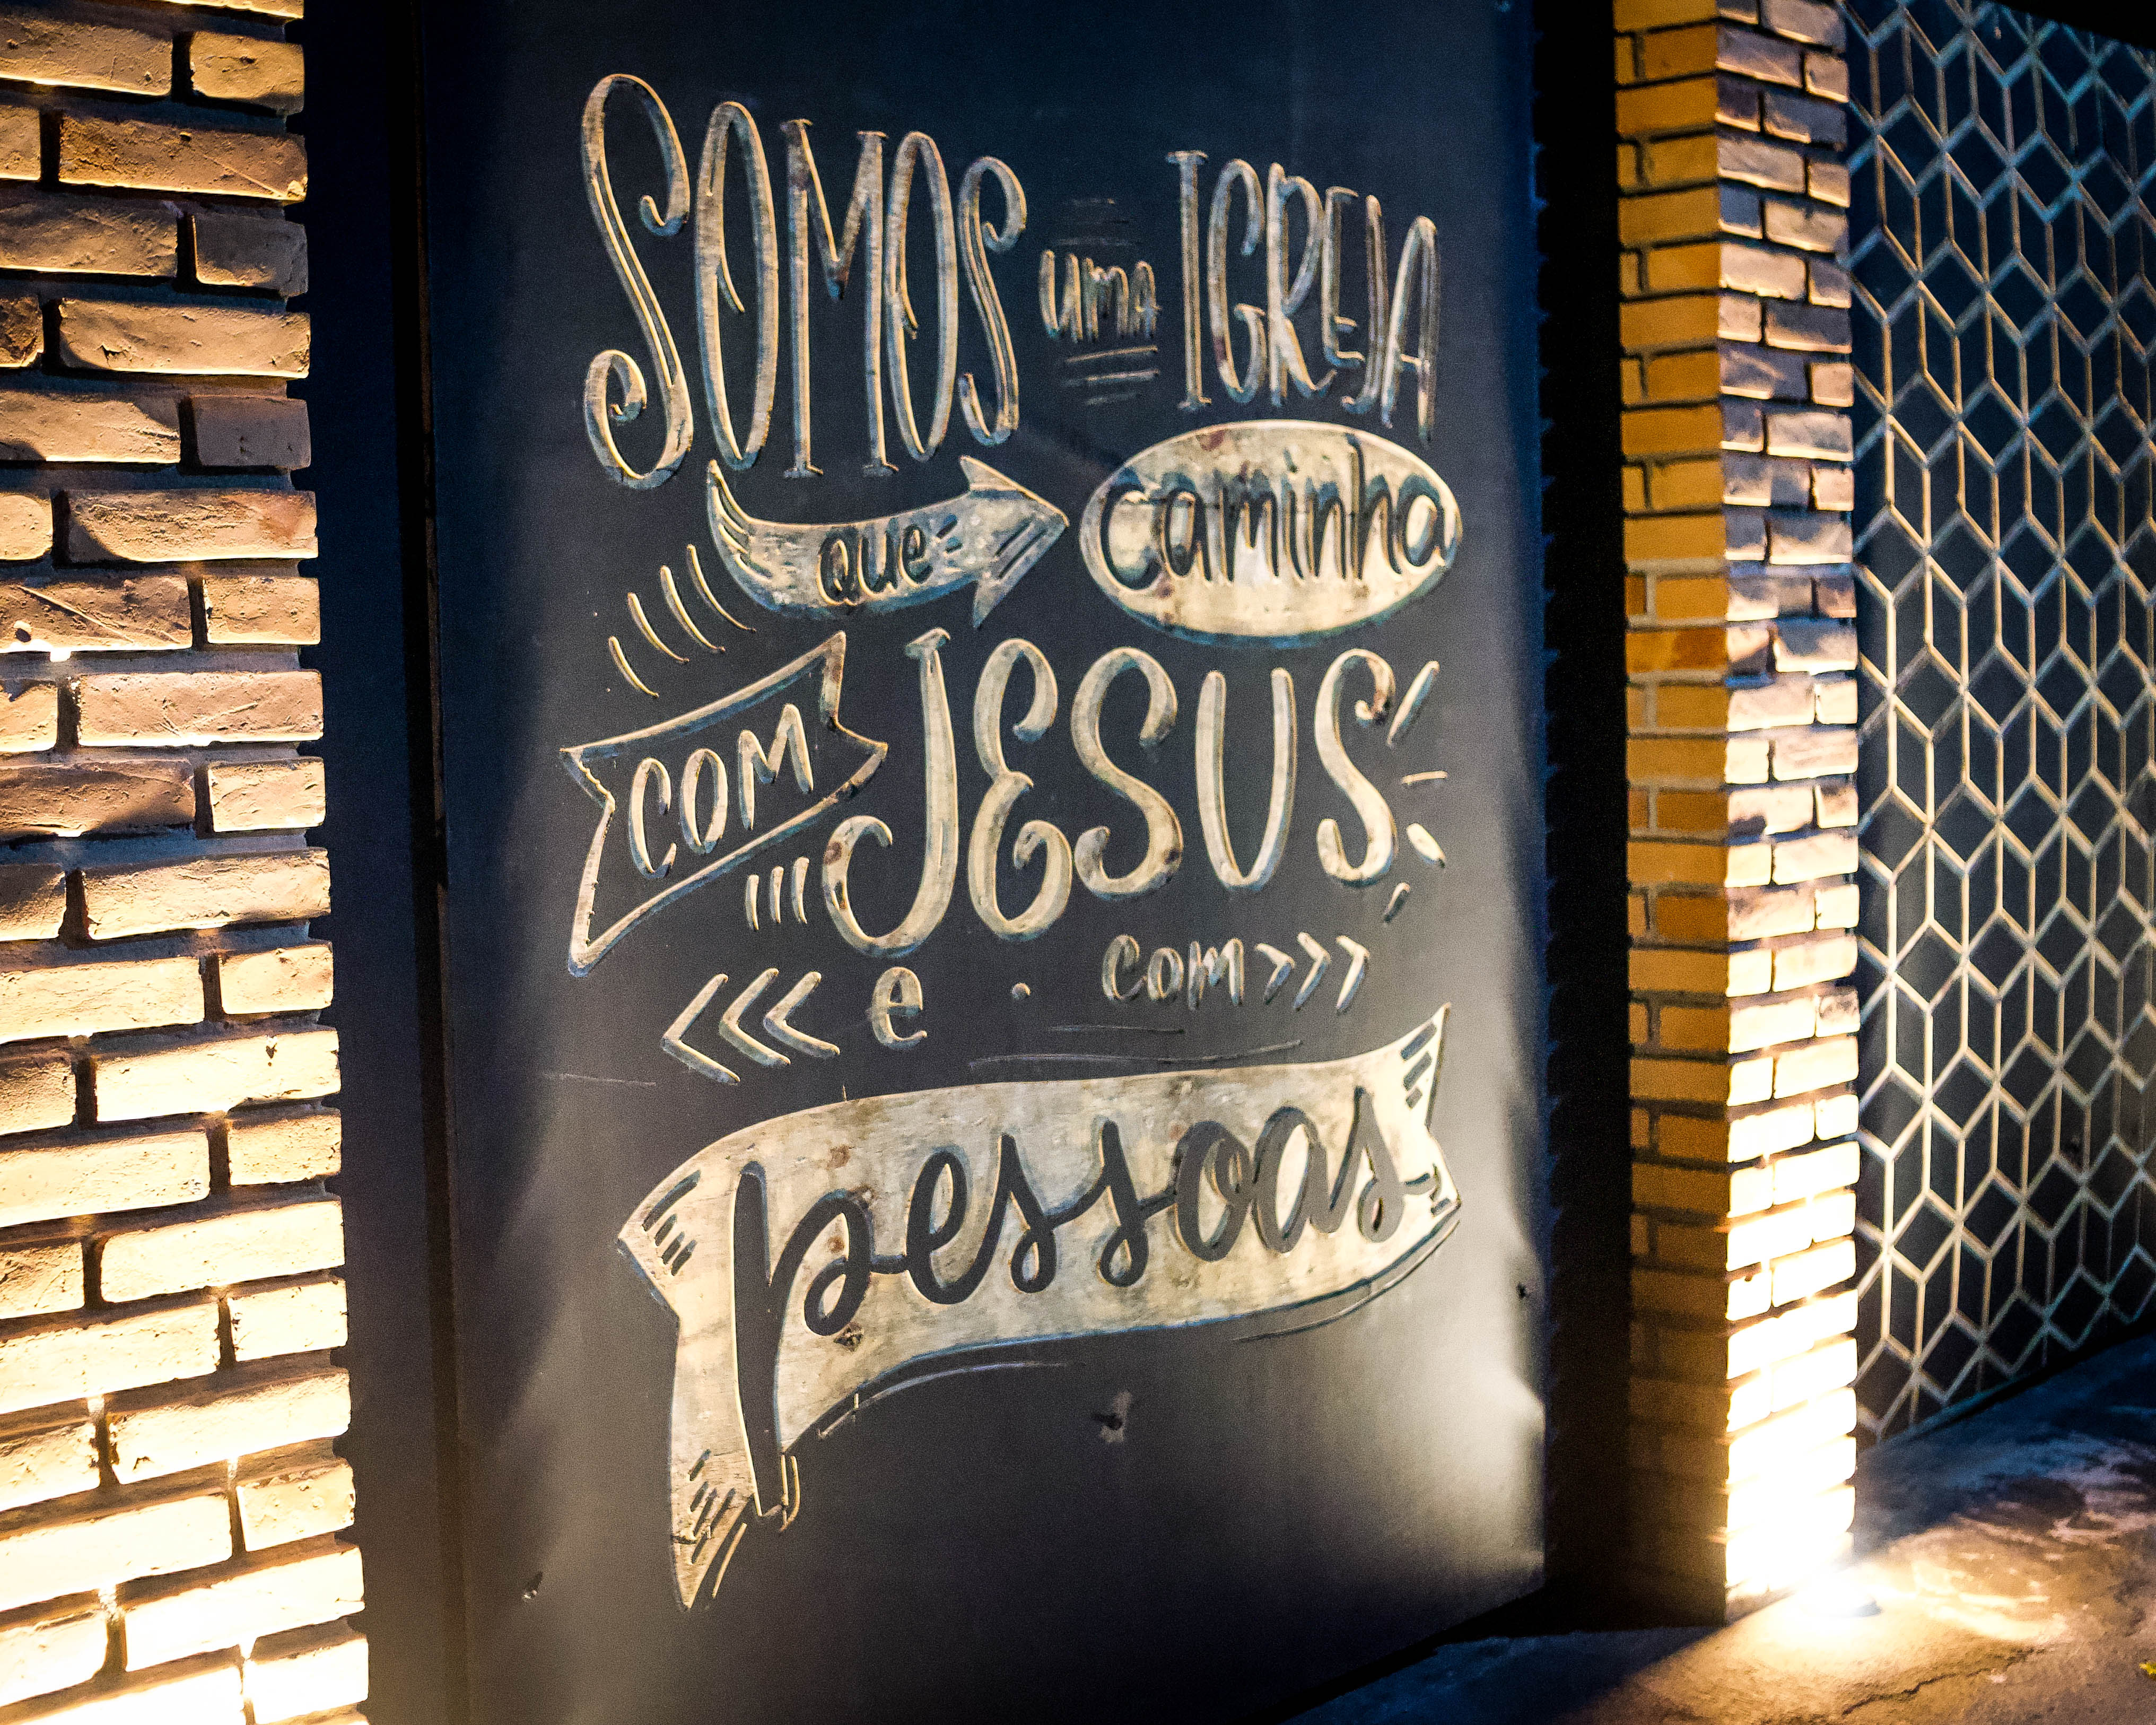 SOMOS uma IGREJA
que caminha
COM JESUS
<<< e · com >>>
pessoas